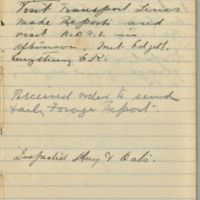 Visit Transport Lines
made Reports and
visit A.D.V.S. in
afternoon. Met Edgell.
Everything O.K.
Received order to send
daily Forage Report.
Inspected Hay & Oats.